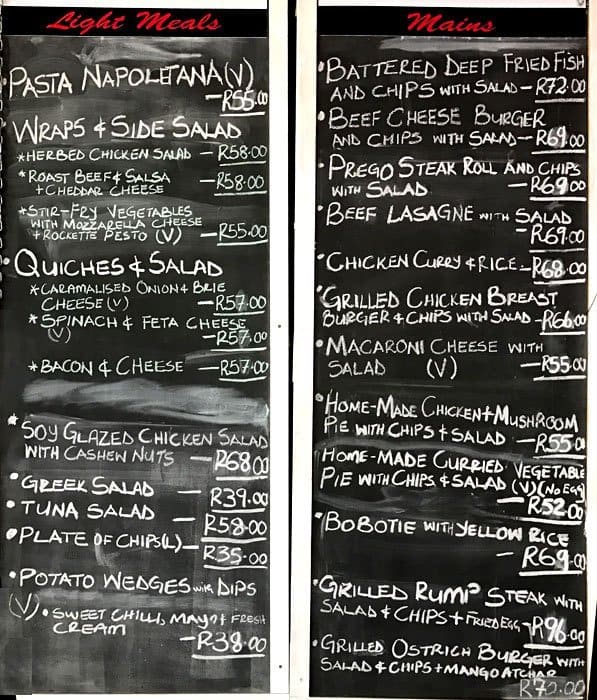 Light Meals
• PASTA NAPOLETANA (V)
– R55.00
WRAPS & SIDE SALAD
* HERBED CHICKEN SALAD – R58.00
* ROAST BEEF & SALSA
+ CHEDDAR CHEESE – R58.00
* STIR-FRY VEGETABLES
WITH MOZZARELLA CHEESE
+ ROCKETTE PESTO (V) – R55.00
• QUICHES & SALAD
* CARAMALISED ONION & BRIE
CHEESE (V) – R57.00
* SPINACH & FETA CHEESE
(V) – R57.00
* BACON & CHEESE – R57.00
* SOY GLAZED CHICKEN SALAD
WITH CASHEN NUTS – R68.00
• GREEK SALAD – R39.00
• TUNA SALAD – R58.00
• PLATE OF CHIPS (L) – R35.00
• POTATO WEDGES WITH DIPS
(V) • SWEET CHILLI, MAYO & FRESH
CREAM
– R38.00
Mains
• BATTERED DEEP FRIED FISH
AND CHIPS WITH SALAD – R72.00
• BEEF CHEESE BURGER
AND CHIPS WITH SALAD – R69.00
• PREGO STEAK ROLL AND CHIPS
WITH SALAD – R69.00
• BEEF LASAGNE WITH SALAD
– R69.00
• CHICKEN CURRY & RICE – R68.00
• GRILLED CHICKEN BREAST
BURGER & CHIPS WITH SALAD – R66.00
• MACARONI CHEESE WITH
SALAD (V) – R55.00
• HOME-MADE CHICKEN + MUSHROOM
PIE WITH CHIPS & SALAD – R55.00
HOME-MADE CURRIED VEGETABLE
PIE WITH CHIPS & SALAD (V) (NO EGG)
– R52.00
• BOBOTIE WITH YELLOW RICE
– R69.00
• GRILLED RUMP STEAK WITH
SALAD & CHIPS + FRIED EGG – R96.00
• GRILLED OSTRICH BURGER WITH
SALAD & CHIPS + MANGO ATCHAR
R70.00